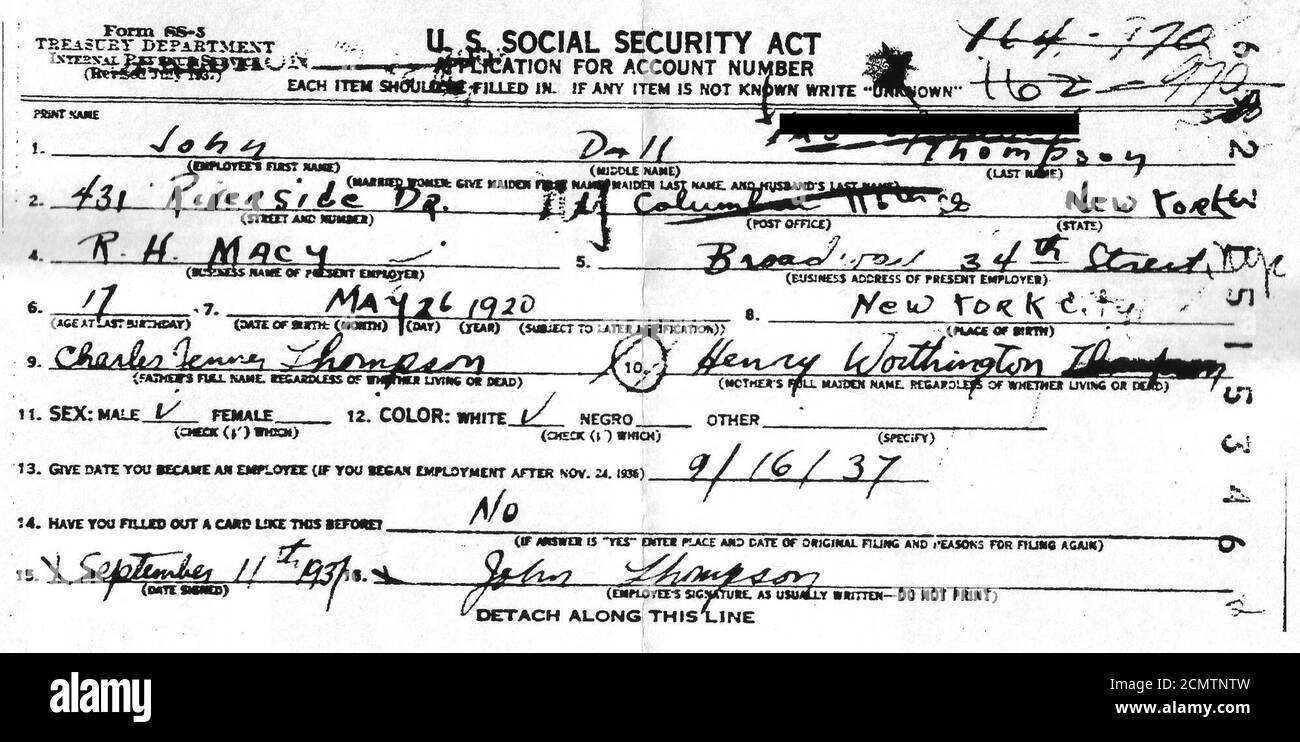 Form SS-5
TREASURY DEPARTMENT
INTERNAL REVENUE SERVICE
(Revised July 193
U. S. SOCIAL SECURITY ACT
APPLICATION FOR ACCOUNT NUMBER
164-
162-
EACH ITEM SHOULD BE FILLED IN. IF ANY ITEM IS NOT KNOWN WRITE "UNKNOWN"
PRINT NAME
1. John Dall Thompson
(EMPLOYEE'S FIRST NAME) (MIDDLE NAME) (LAST NAME)
(MARRIED WOMEN: GIVE MAIDEN FIRST NAME, MAIDEN LAST NAME, AND HUSBAND'S LAST NAME)
2. 431 Riverside DR. NEW YORK
(STREET AND NUMBER) (POST OFFICE) (STATE)
4. R. H. MACY 5. Broadway 34th Street, NYC
(BUSINESS NAME OF PRESENT EMPLOYER) (BUSINESS ADDRESS OF PRESENT EMPLOYER)
6. 17 7. MAY 26 1920 8. NEW YORK City
(AGE AT LAST BIRTHDAY) (DATE OF BIRTH: (MONTH) (DAY) (YEAR) (SUBJECT TO LATER VERIFICATION)) (PLACE OF BIRTH)
9. Charles Thompson 10. Henry Worthington
(FATHER'S FULL NAME, REGARDLESS OF WHETHER LIVING OR DEAD) (MOTHER'S FULL MAIDEN NAME, REGARDLESS OF WHETHER LIVING OR DEAD)
11. SEX: MALE √ FEMALE 12. COLOR: WHITE √ NEGRO OTHER
(CHECK (√) WHICH) (CHECK (√) WHICH) (SPECIFY)
13. GIVE DATE YOU BECAME AN EMPLOYEE (IF YOU BEGAN EMPLOYMENT AFTER NOV. 24, 1936) 9/16/37
14. HAVE YOU FILLED OUT A CARD LIKE THIS BEFORE? No
(IF ANSWER IS "YES" ENTER PLACE AND DATE OF ORIGINAL FILING AND REASONS FOR FILING AGAIN)
15. September 11th 1937 16. John Thompson
(DATE SIGNED) (EMPLOYEE'S SIGNATURE, AS USUALLY WRITTEN—DO NOT PRINT)
DETACH ALONG THIS LINE
alamy
Image ID: 2CMTNTW
www.alamy.com